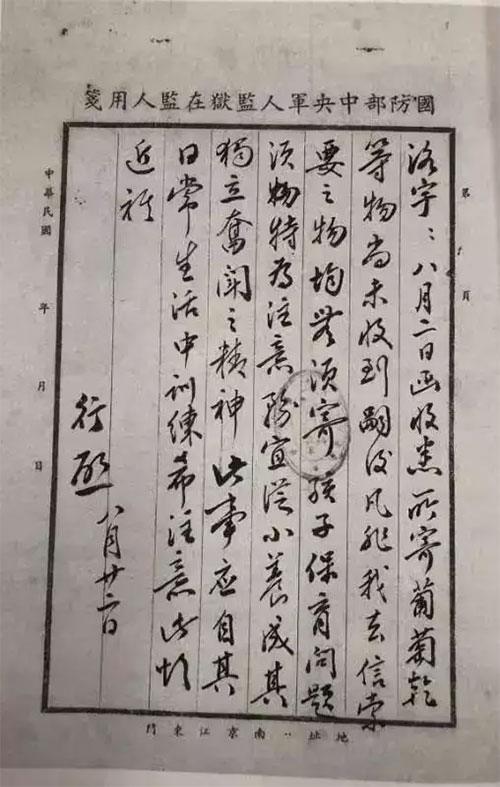 國防部中央軍人監獄在監人用箋
第 頁
洛宇：八月二日函收悉所寄葡萄乾
等物尚未收到嗣後凡非我去信索
要之物均無須寄孩子保育問題
須特為注意務宜從小養成其
獨立奮鬥之精神此事應自其
日常生活中訓練希注意此頌
近祺
行 八月廿二日
中華民國 年 月 日
地址：南京江東門